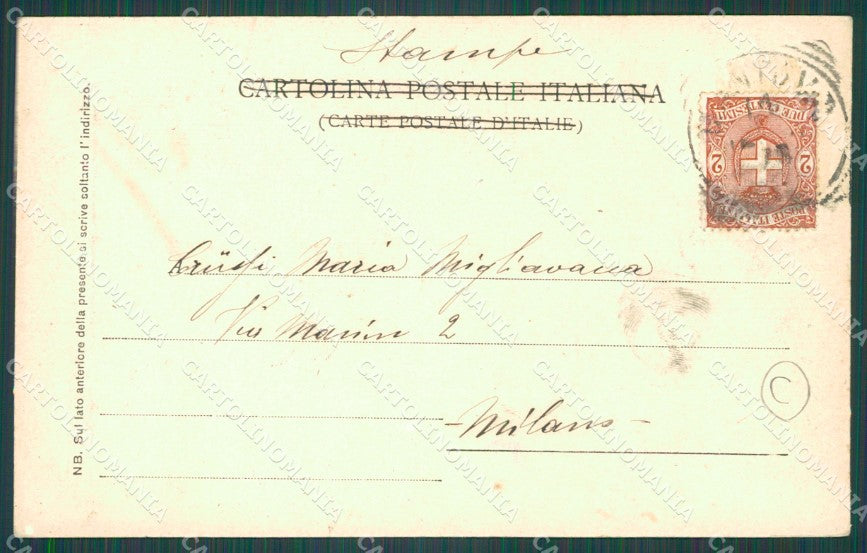 Stampe
CARTOLINA POSTALE ITALIANA
(CARTE POSTALE D'ITALIE)
NB. Sul lato anteriore della presente si scrive soltanto l'indirizzo.
DUE CENTESIMI
2 2
POSTE ITALIANE
Maria Migliavacca
Via Marino 2
C
-Milano-
CARTOLINOMANIA